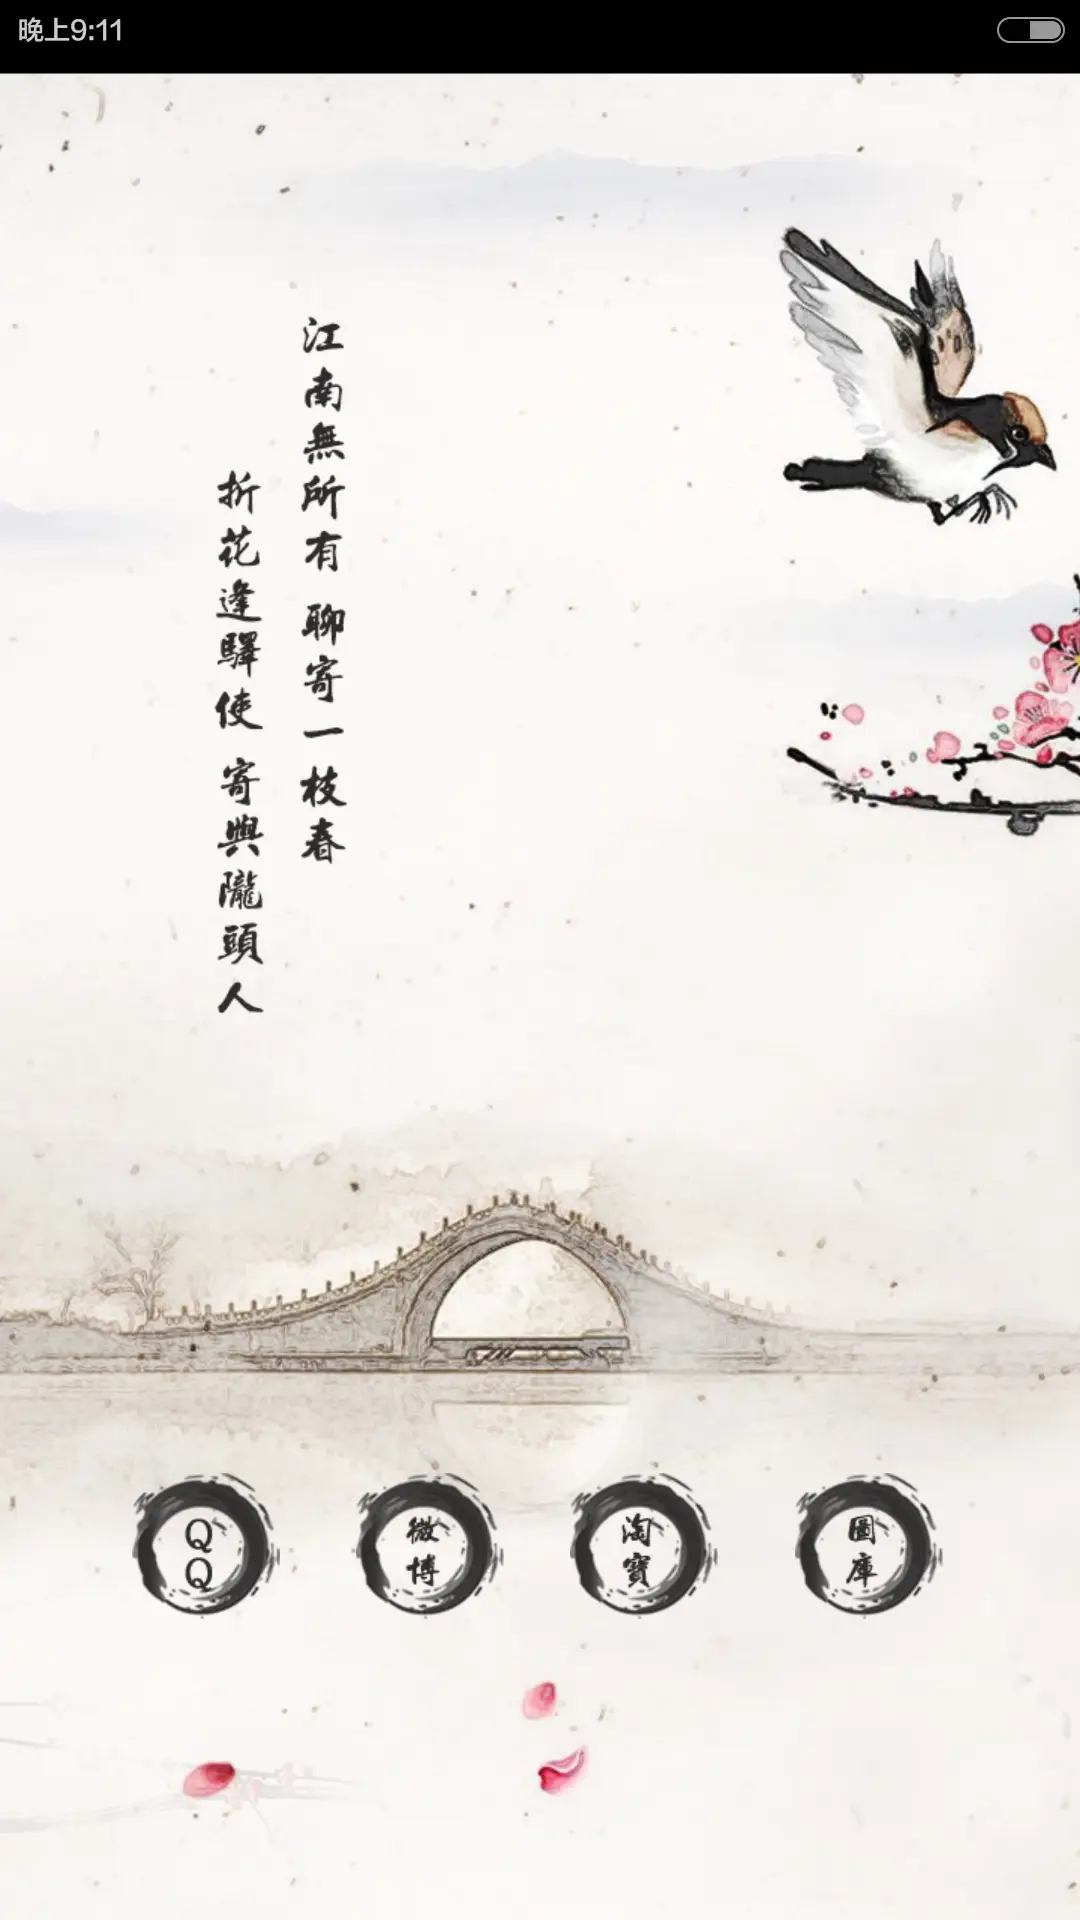 晚上9:11
江南無所有 聊寄一枝春
折花逢驛使 寄與隴頭人
QQ
微博
淘寶
圖庫